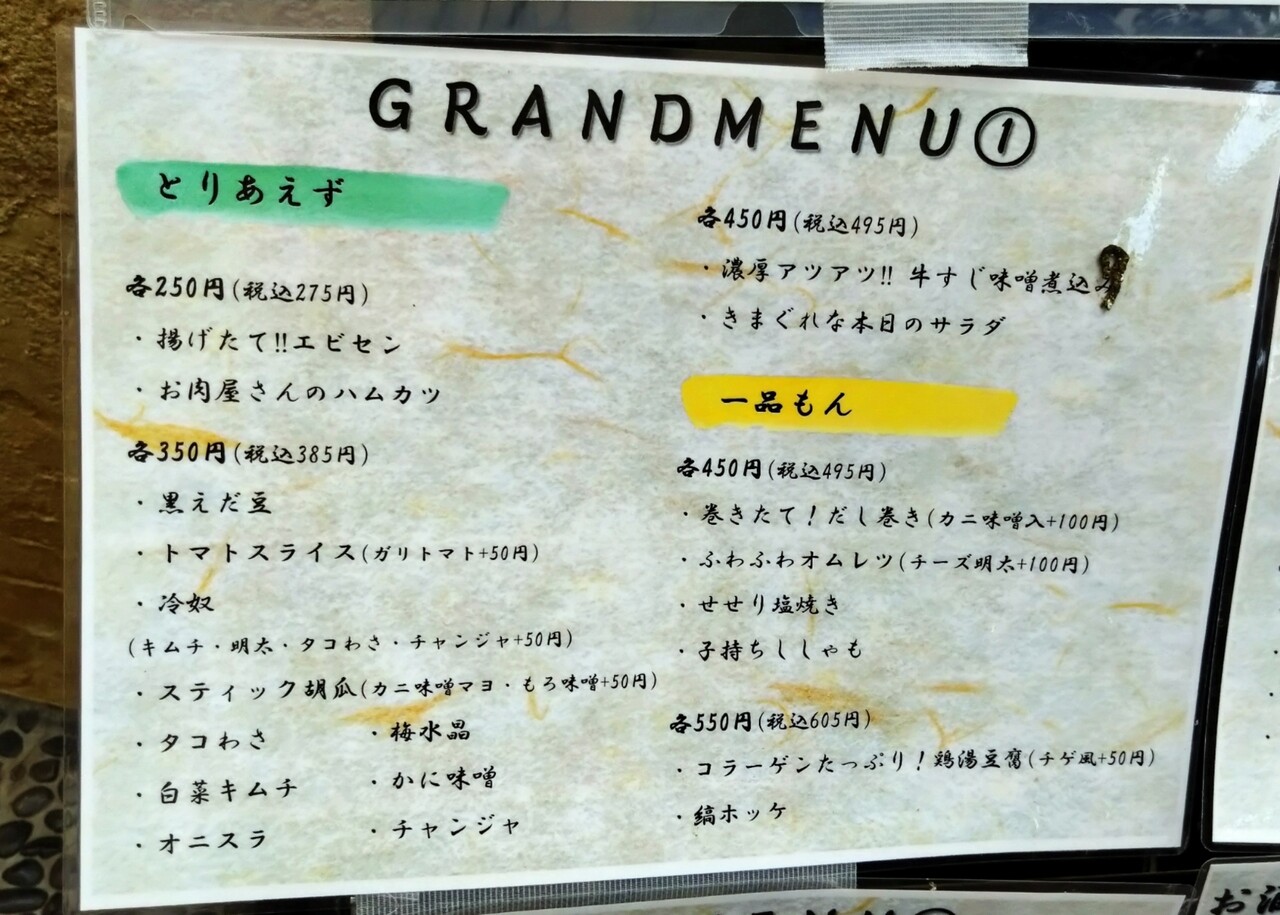 GRANDMENU①
とりあえず
各250円(税込275円)
・揚げたて!!エビセン
・お肉屋さんのハムカツ
各350円(税込385円)
・黒えだ豆
・トマトスライス(ガリトマト+50円)
・冷奴
(キムチ・明太・タコわさ・チャンジャ+50円)
・スティック胡瓜(カニ味噌マヨ・もろ味噌+50円)
・タコわさ
・白菜キムチ
・オニスラ
・梅水晶
・かに味噌
・チャンジャ
各450円(税込495円)
・濃厚アツアツ!!牛すじ味噌煮込み
・きまぐれな本日のサラダ
一品もん
各450円(税込495円)
・巻きたて！だし巻き(カニ味噌入+100円)
・ふわふわオムレツ(チーズ明太+100円)
・せせり塩焼き
・子持ちししゃも
各550円(税込605円)
・コラーゲンたっぷり！鶏湯豆腐(チゲ風+50円)
・縞ホッケ